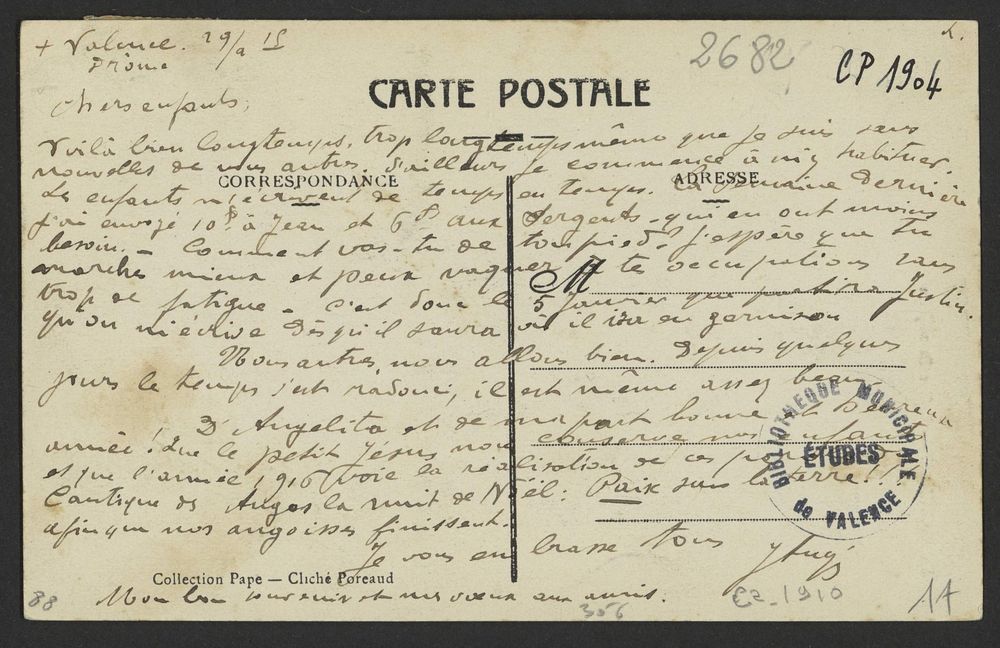 + Valence. 29/ 15
Drôme
2682
CP 1904
CARTE POSTALE
Chers enfants,
Voilà bien longtemps, trop longtemps même que je suis sans
nouvelles de vous autres. D'ailleurs je commence à m'y habituer.
CORRESPONDANCE
ADRESSE
Les enfants m'écrivent de temps en temps. La semaine dernière
j'ai envoyé 10f à Jean et 6f aux Sergents qui en ont moins
besoin. Comment vas-tu de ton pied? J'espère que tu
marches mieux et peux vaquer à te occupations sans
M
trop de fatigue. C'est donc le 5 Janvier que partira Justin.
Qu'on m'écrive dès qu'il saura où il ira en garnison
Nous autres, nous allons bien. Depuis quelques
jours le temps s'est radouci, il est même assez beau
D'Angelita et de ma part bonne et heureuse
année! Que le petit Jésus nous conserve nos enfants
et que l'année 1916 voie la réalisation de ces
Cantique des Anges la nuit de Noël: Paix sur la terre!!
afin que nos angoisses finissent.
Je vous embrasse tous
BIBLIOTHEQUE MUNICIPALE
ÉTUDES
de VALENCE
Collection Pape — Cliché Poreaud
Mon bon souvenir et mes vœux aux amis.
88
356
C2-1910